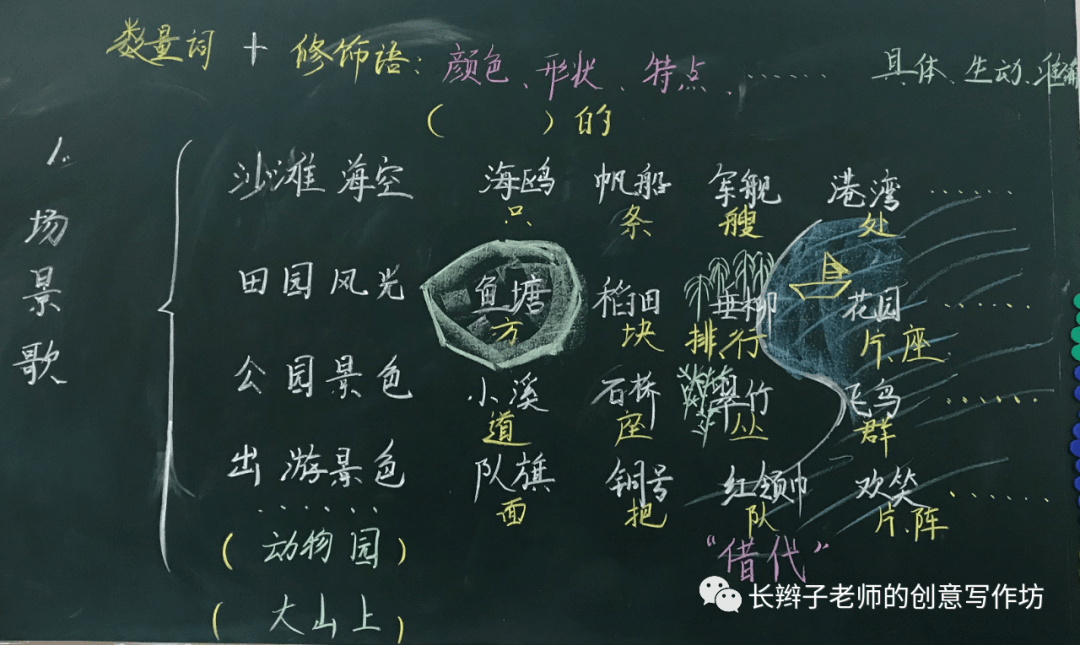 数量词 + 修饰语：颜色、形状、特点、…… 具体、生动、准确
（ ）的
1. 场景歌
沙滩海空 海鸥 帆船 军舰 港湾 ……
只 条 艘 处
田园风光 鱼塘 稻田 垂柳 花园 ……
方 块 排、行 片、座
公园景色 小溪 石桥 翠竹 飞鸟 ……
道 座 丛 群
出游景色 队旗 铜号 红领巾 欢笑 ……
面 把 队 片、阵
……
（动物园） “借代”
（大山上）
长辫子老师的创意写作坊